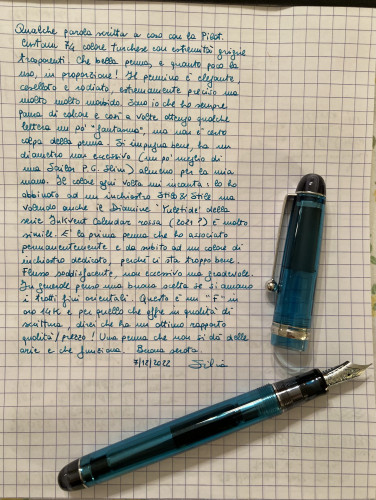 Qualche parola scritta a caso con la Pilot
Custom 74 colore turchese con estremità grigie
trasparenti. Che bella penna, e quanto poco la
uso, in proporzione! Il pennino è elegante,
cesellato e rodiato, estremamente preciso ma
molto molto morbido. Sono io che ho sempre
paura di calcare e così a volte ottengo qualche
lettera un po' "fantasma", ma non è certo
colpa della penna. Si impugna bene, ha un
diametro non eccessivo (un po' meglio di
una Sailor P.G. Slim) almeno per la mia
mano. Il colore ogni volta mi incanta: lo ho
abbinato ad un inchiostro Stilo & Stile ma
volendo anche il Diamine "Yuletide" della
serie Inkvent Calendar rossa (2021?) è molto
simile. E' la prima penna che ho associato
permanentemente e da subito ad un colore di
inchiostro dedicato, perché ci sta troppo bene.
Flusso soddisfacente, non eccessivo ma gradevole.
In generale penso una buona scelta se si amano
i tratti fini orientali. Questo è un "F" in
oro 14K e per quello che offre in qualità di
scrittura, direi che ha un ottimo rapporto
qualità/prezzo! Una penna che non si dà delle
arie e che funziona. Buona serata
7/12/2022 Silvia